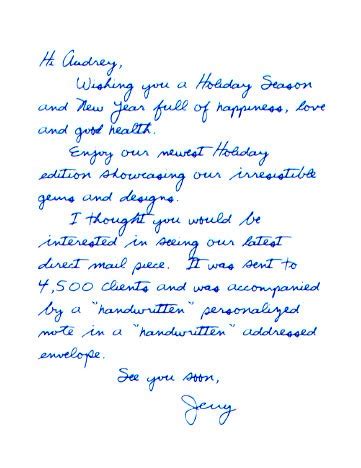 Hi Audrey,
Wishing you a Holiday Season
and New Year full of happiness, love
and good health.
Enjoy our newest Holiday
edition showcasing our irresistible
gems and designs.
I thought you would be
interested in seeing our latest
direct mail piece. It was sent to
4,500 clients and was accompanied
by a "handwritten" personalized
note in a "handwritten" addressed
envelope.
See you soon,
Jerry